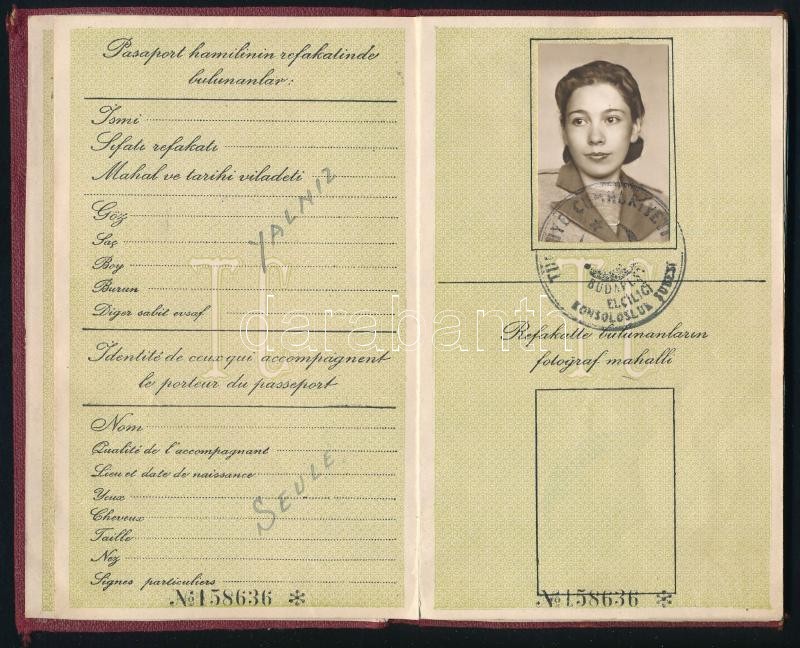 Pasaport hamilinin refakatinde
bulunanlar:
İsmi
Sıfatı refakatı
Mahal ve tarihi viladeti
Göz
Saç
Boy
Burun
Diger sabit evsaf
YALNIZ
Identité de ceux qui accompagnent
le porteur du passeport
Nom
Qualité de l'accompagnant
Lieu et date de naissance
Yeux
Cheveux
Taille
Nez
Signes particuliers
SEULE.
№158636 *
BUDAPEŞTE
ELÇİLİĞİ
KONSOLOSLUK ŞUBESİ
Refakatte bulunanların
fotoğraf mahalli
№158636 *
darabanth